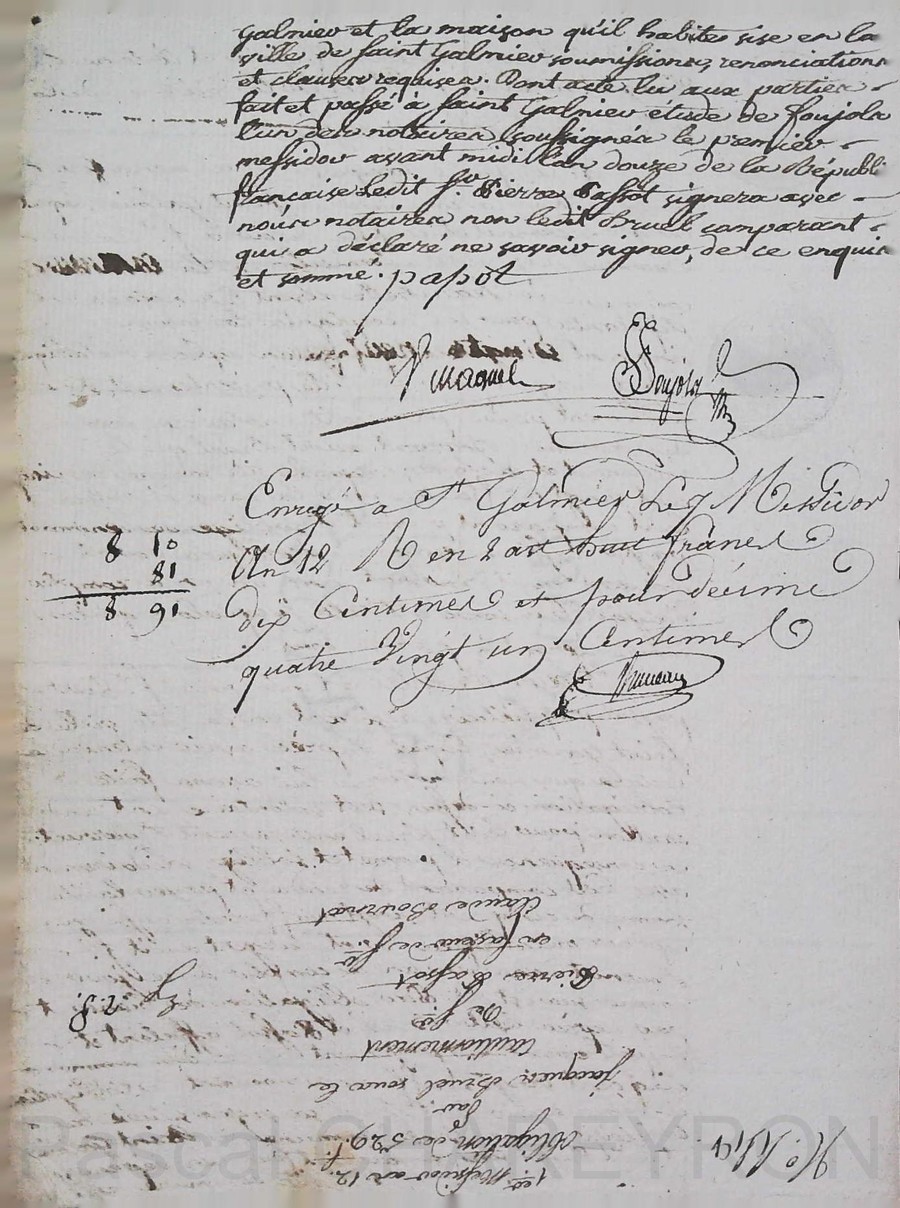 galmier et la maison qu'il habite sise en la
ville de saint galmier soumissions, renonciations
et clauses requises. Dont acte lu aux parties
fait et passé à saint galmier étude de soujola
l'un des notaires soussignés le premier
messidor avant midi l'an douze de la Républi
française Ledit Sr. Pierre Passot signera avec
nous notaires non ledit Bruel comparant
qui a déclaré ne savoir signer, de ce enquis
et sommé. papot
Soujola
Enregé a St Galmier Le 7 Messidor
8 10
81
8 91
An 12 R en 2 art huit francs
dix Centimes et pour décime
quatre Vingt un Centimes
1er. Messidor an 12.
obligation de 529 f.
par
jacques Bruel sous le
cautionnement
de Sr
Pierre Passot
en faveur de Sr.
claude Bournat
Pascal CHAREYRON